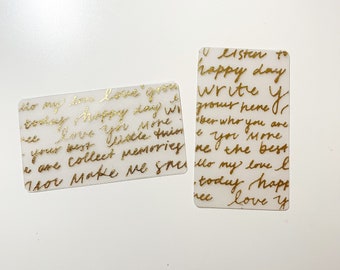 lo my love
today happy day w
love you more
your best little
e are collect memories
you make me
u listen to
happy day
write y
grow here
ber who you are
e you more
me the best
llo my love l
today happ
ee love y